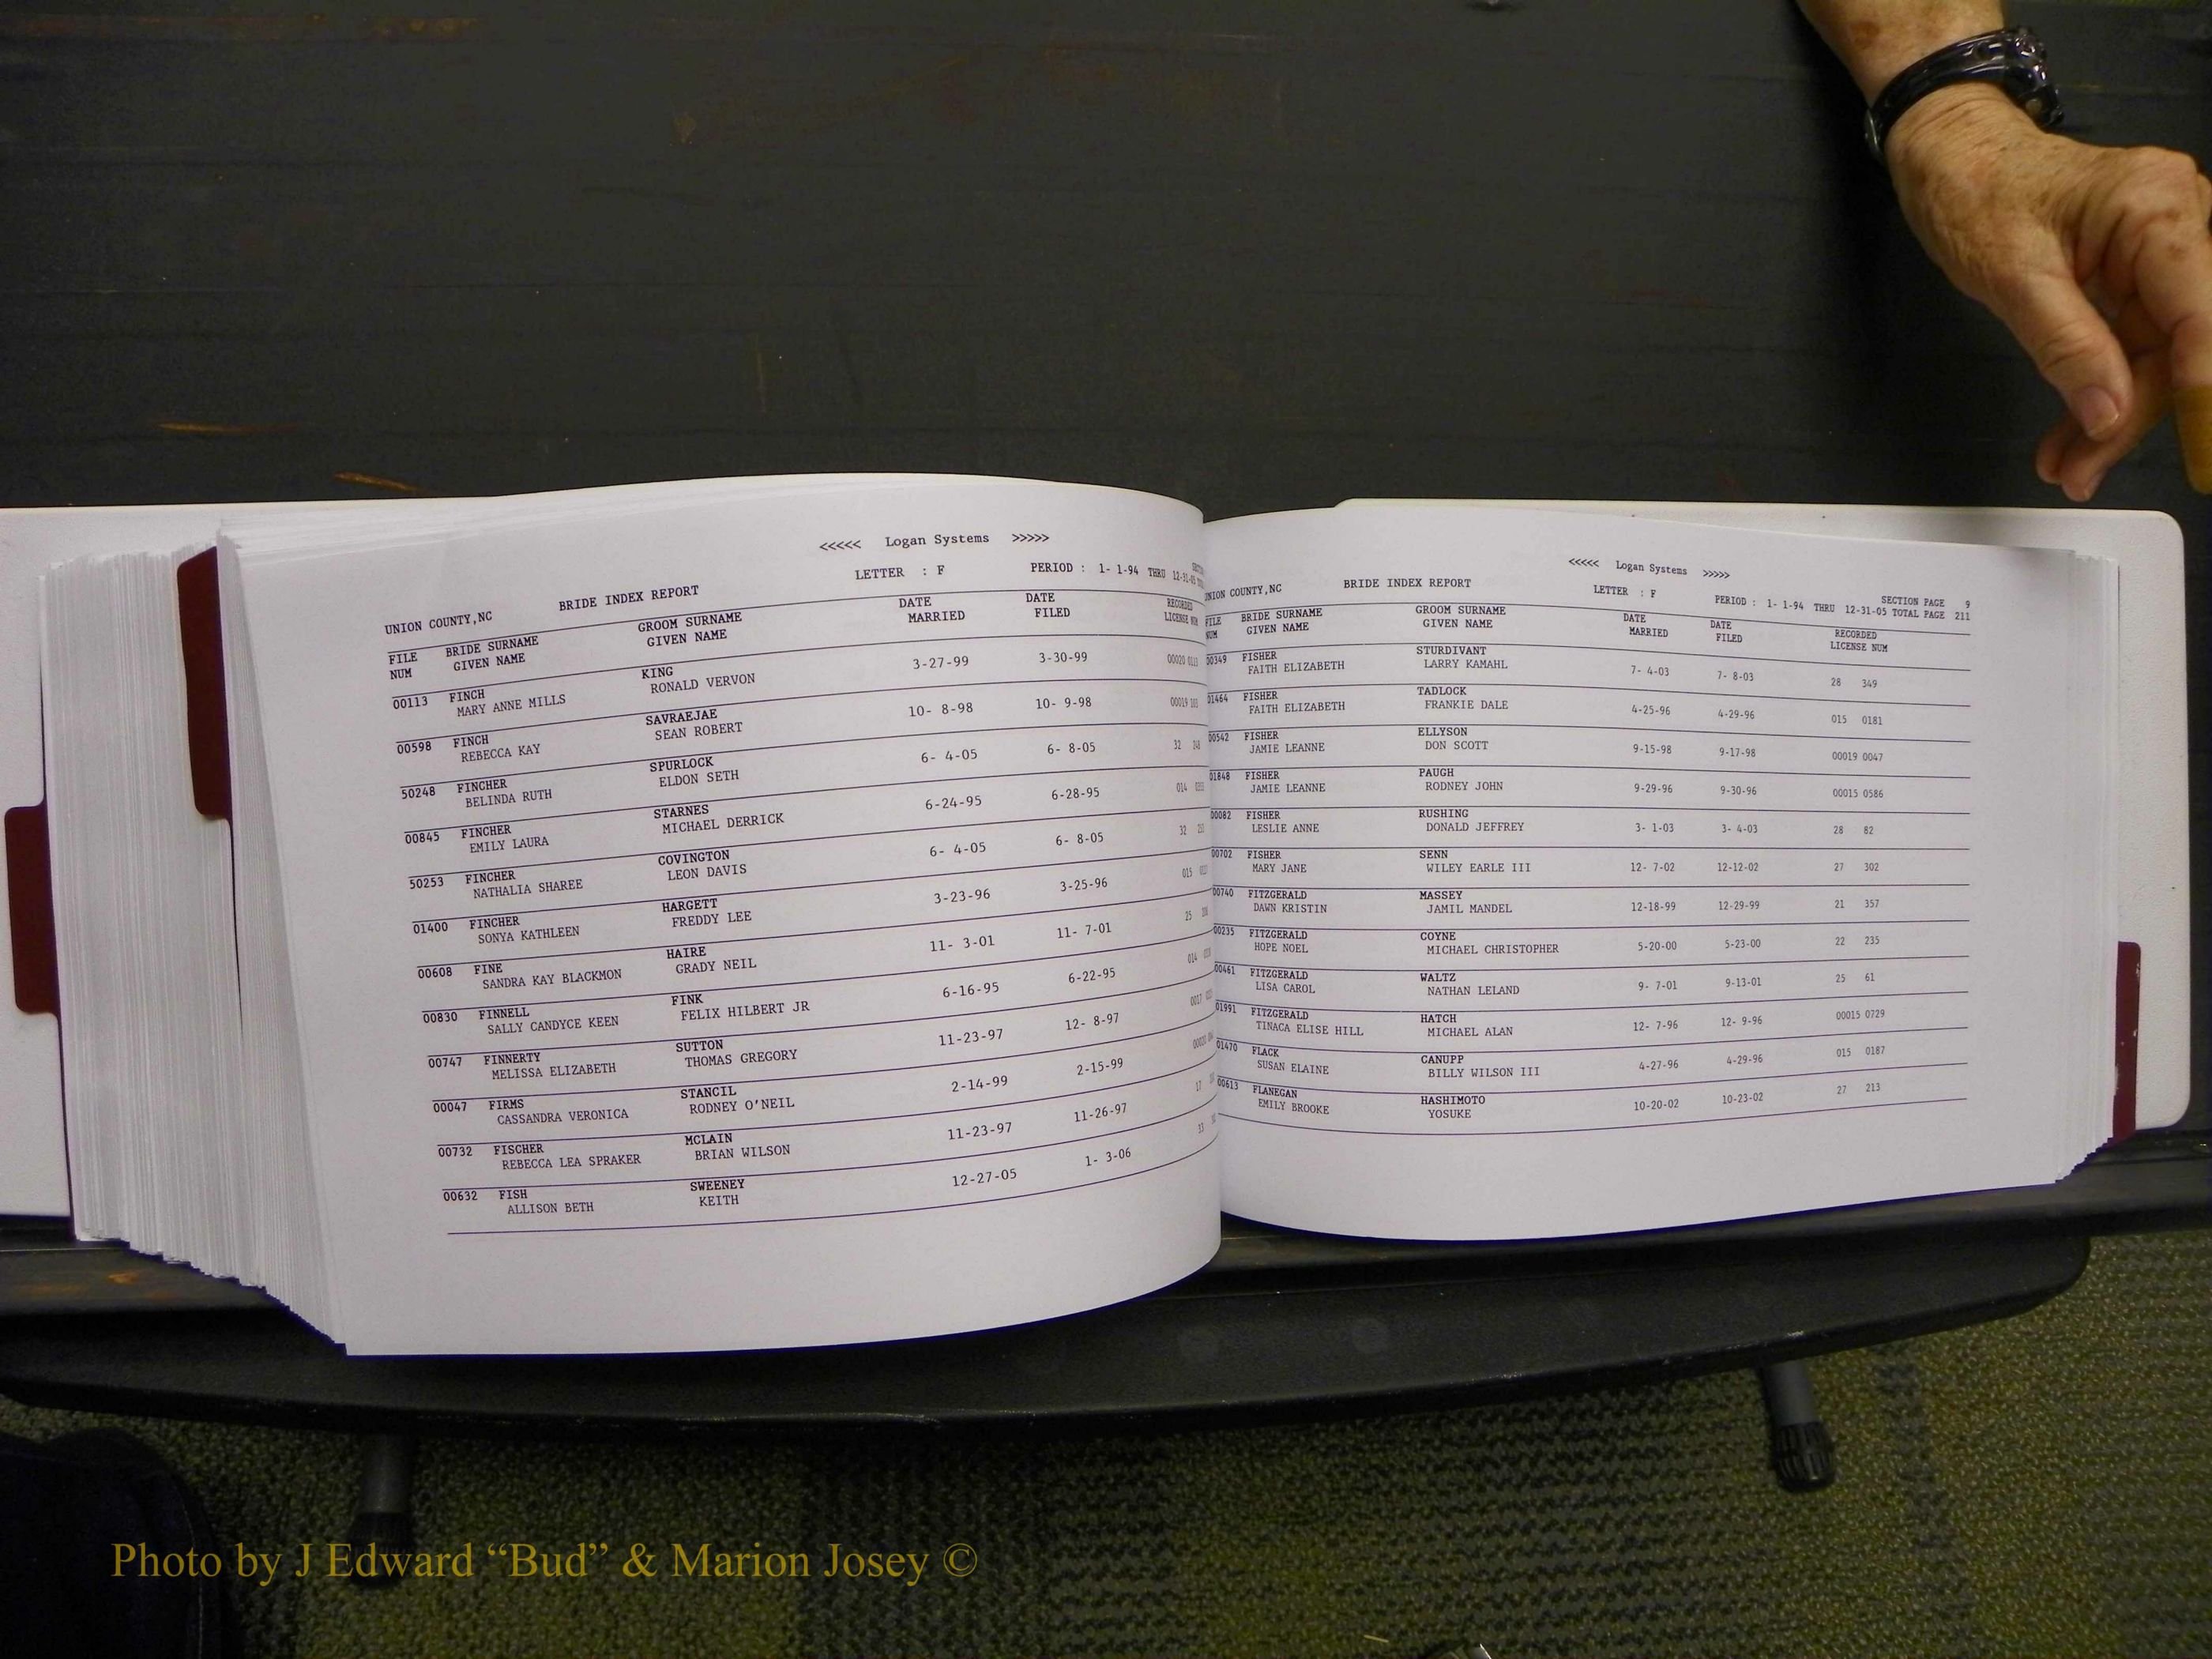 <<<<< Logan Systems >>>>>
UNION COUNTY,NC BRIDE INDEX REPORT LETTER : F PERIOD : 1- 1-94 THRU 12-31-05
FILE NUM BRIDE SURNAME GIVEN NAME GROOM SURNAME GIVEN NAME DATE MARRIED DATE FILED RECORDED LICENSE NUM
00113 FINCH KING 3-27-99 3-30-99
MARY ANNE MILLS RONALD VERVON
00598 FINCH SAVRAEJAE 10- 8-98 10- 9-98
REBECCA KAY SEAN ROBERT
50248 FINCHER SPURLOCK 6- 4-05 6- 8-05 32
BELINDA RUTH ELDON SETH
00845 FINCHER STARNES 6-24-95 6-28-95 014
EMILY LAURA MICHAEL DERRICK
50253 FINCHER COVINGTON 6- 4-05 6- 8-05 32
NATHALIA SHAREE LEON DAVIS
01400 FINCHER HARGETT 3-23-96 3-25-96 015
SONYA KATHLEEN FREDDY LEE
00608 FINE HAIRE 11- 3-01 11- 7-01 25
SANDRA KAY BLACKMON GRADY NEIL
00830 FINNELL FINK 6-16-95 6-22-95 014
SALLY CANDYCE KEEN FELIX HILBERT JR
00747 FINNERTY SUTTON 11-23-97 12- 8-97 0017
MELISSA ELIZABETH THOMAS GREGORY
00047 FIRMS STANCIL 2-14-99 2-15-99
CASSANDRA VERONICA RODNEY O'NEIL
00732 FISCHER MCLAIN 11-23-97 11-26-97 17
REBECCA LEA SPRAKER BRIAN WILSON
00632 FISH SWEENEY 12-27-05 1- 3-06 33
ALLISON BETH KEITH
<<<<< Logan Systems >>>>>
UNION COUNTY,NC BRIDE INDEX REPORT LETTER : F PERIOD : 1- 1-94 THRU 12-31-05 SECTION PAGE 9
TOTAL PAGE 211
FILE NUM BRIDE SURNAME GIVEN NAME GROOM SURNAME GIVEN NAME DATE MARRIED DATE FILED RECORDED LICENSE NUM
00349 FISHER STURDIVANT 7- 4-03 7- 8-03 28 349
FAITH ELIZABETH LARRY KAMAHL
01464 FISHER TADLOCK 4-25-96 4-29-96 015 0181
FAITH ELIZABETH FRANKIE DALE
00542 FISHER ELLYSON 9-15-98 9-17-98 00019 0047
JAMIE LEANNE DON SCOTT
01848 FISHER PAUGH 9-29-96 9-30-96 00015 0586
JAMIE LEANNE RODNEY JOHN
00082 FISHER RUSHING 3- 1-03 3- 4-03 28 82
LESLIE ANNE DONALD JEFFREY
00702 FISHER SENN 12- 7-02 12-12-02 27 302
MARY JANE WILEY EARLE III
00740 FITZGERALD MASSEY 12-18-99 12-29-99 21 357
DAWN KRISTIN JAMIL MANDEL
00235 FITZGERALD COYNE 5-20-00 5-23-00 22 235
HOPE NOEL MICHAEL CHRISTOPHER
00461 FITZGERALD WALTZ 9- 7-01 9-13-01 25 61
LISA CAROL NATHAN LELAND
01991 FITZGERALD HATCH 12- 7-96 12- 9-96 00015 0729
TINACA ELISE HILL MICHAEL ALAN
01470 FLACK CANUPP 4-27-96 4-29-96 015 0187
SUSAN ELAINE BILLY WILSON III
00613 FLANEGAN HASHIMOTO 10-20-02 10-23-02 27 213
EMILY BROOKE YOSUKE
Photo by J Edward “Bud” & Marion Josey ©